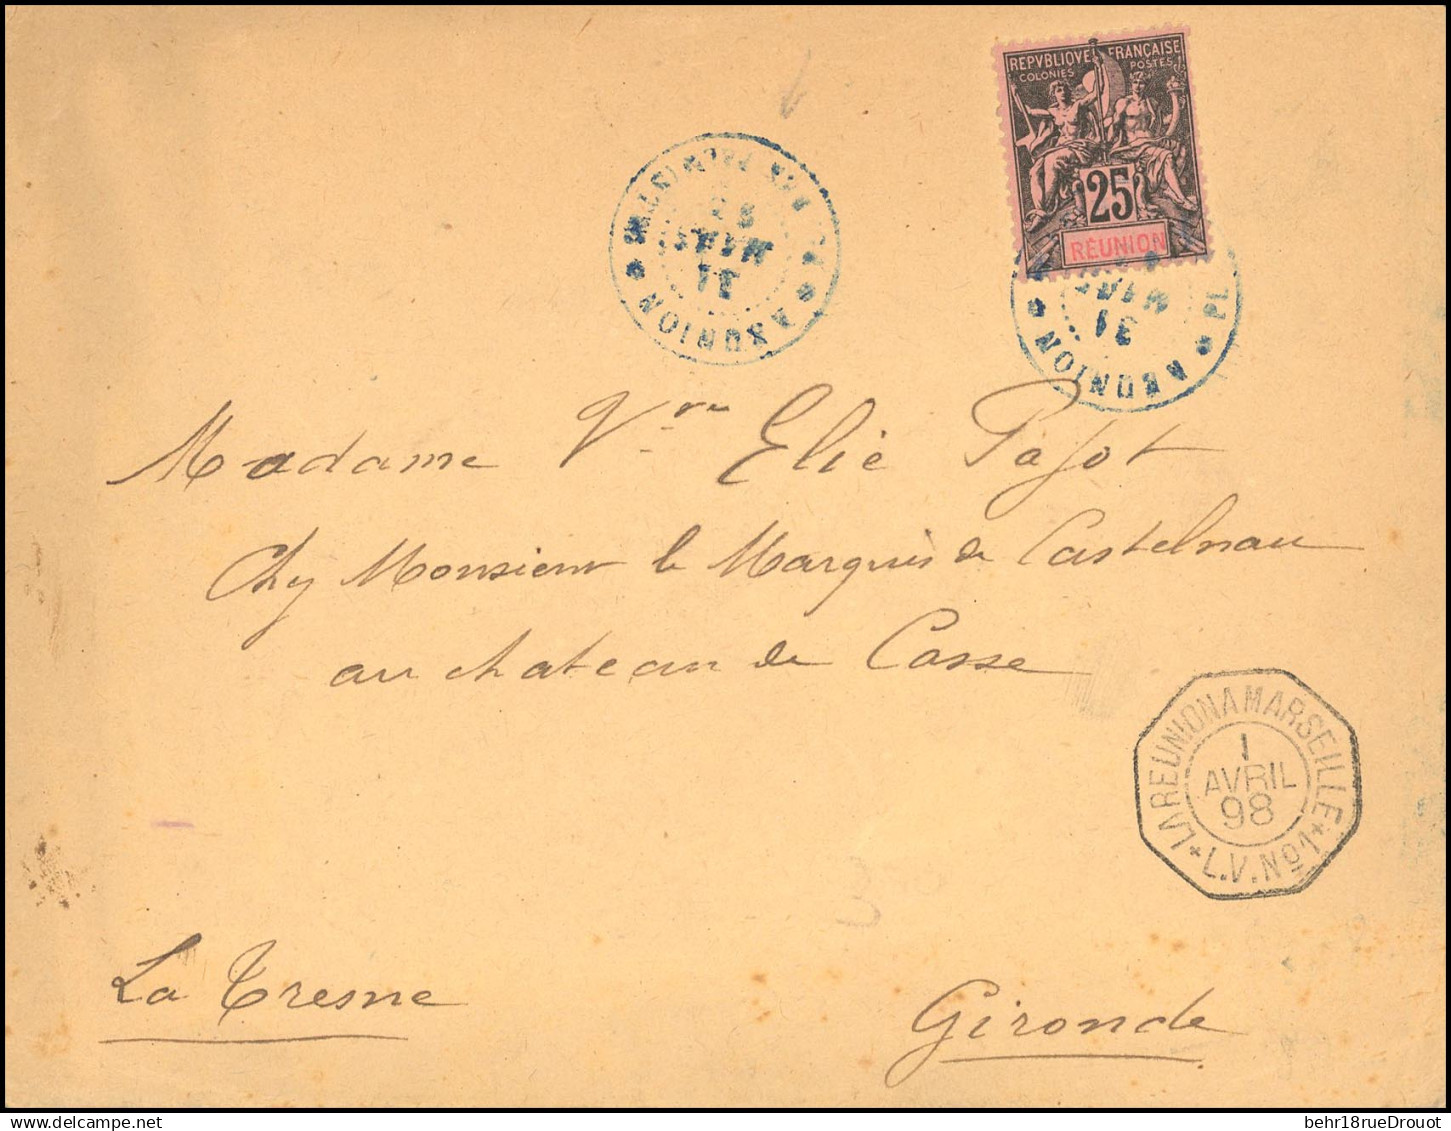 REPVBLIQVE FRANÇAISE
COLONIES POSTES
25
RÉUNION
31
MARS
* REUNION *
PL
31
MARS
* REUNION *
Madame Vve Elie Pajot
Chez Monsieur le Marquis de Castelnau
au chateau de Casse
LA REUNION A MARSEILLE
1
AVRIL
98
* L.V. No1 *
La Tresne
Gironde
behr18rueDrouot